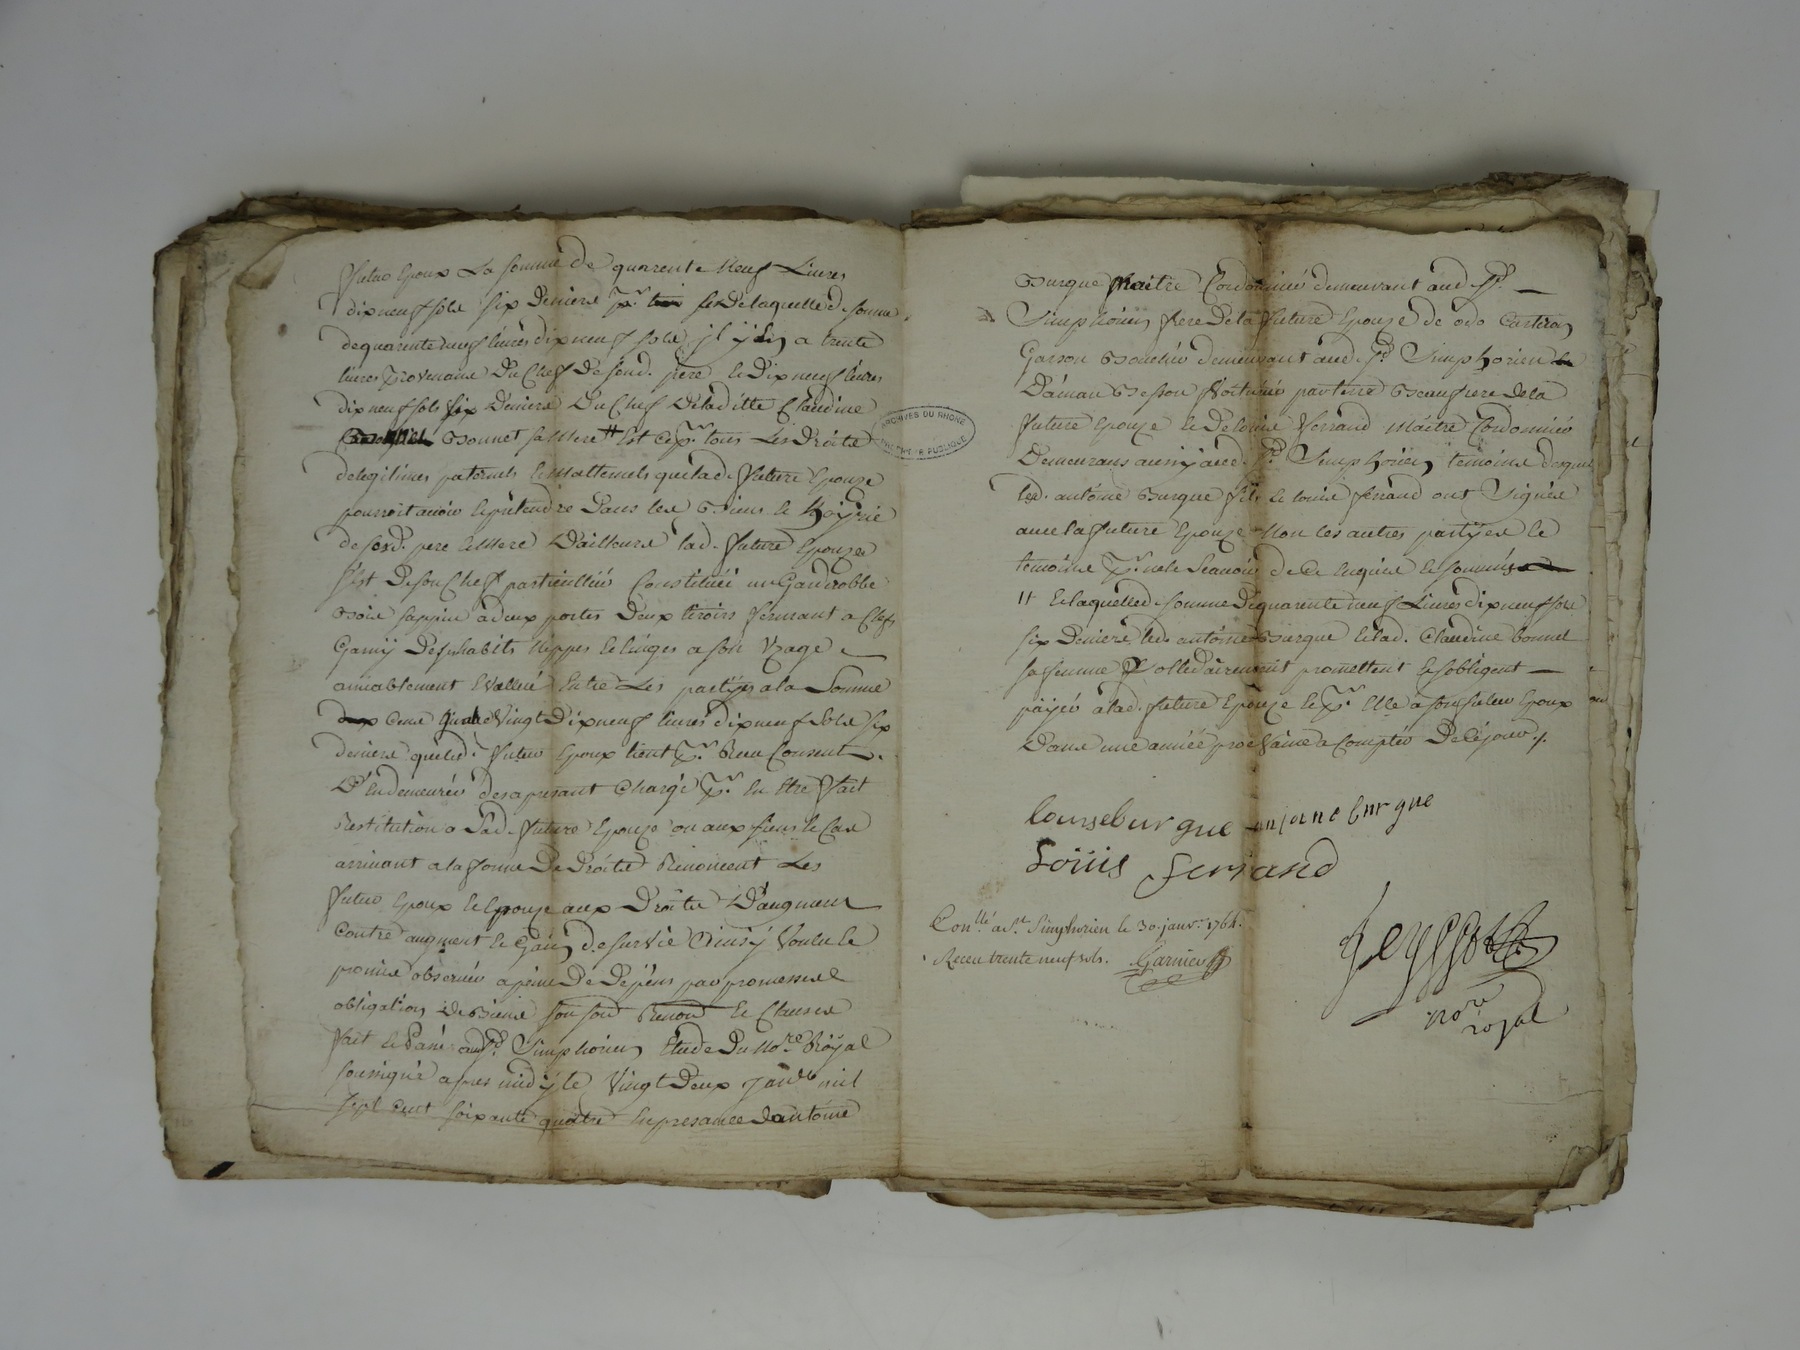 futur Epoux La somme de quarente Neuf Livres
dixneuf sols six Deniers pr. de laquelle d. somme
de quarente neuf livres dix neuf sols jl y En a trente
livres provenant Du Chef De sond. pere le Dixneuf livres
dix neuf sols six Deniers Du Chef De laditte Claudine
Bonnet sa Mere # Est ce pr. tous Les Droits
de legitimes paternels Et Maternels que lad. future Epouze
pourroit avoir Et pretendre Dans les Biens Et hoyrie
de sesd. pere Et Mere D'ailleurs lad. future Epouze
s'est De son Chef particullier Constituée un Gardrobbe
Bois sappin a deux portes Deux tiroirs fermant a Clefs
Garny De ses habits Nippes Et linges a son Uzage
amiablement Evallué Entre Les partyes a la Somme
de Cent quatre Vingt Dixneuf livres dixneuf Sols six
deniers que led. futur Epoux tient pr. Receu Consent
D'En demeurer des apresant Chargé pr. En Etre fait
Restitution a Lad. future Epouze ou aux siens le Cas
arrivant a la forme De Droits Renoncent Les
futur Epoux Et Epouze aux Droits D'augment
Contre augment Et Gain de survie Ainsy Voulu Et
promis observer a peine De Depens par promesses
obligation de Biens Soumis Renon Et Clauses
fait Et Passé aud. St. Simphorien Etude Du Nore. Royal
soussigné apres midy le Vingt Deux janvr. mil
sept Cent soixante quatre En presance D'antoine
Burgue Maitre Cordonnier demeurant aud. St.
Simphorien frere De la future Epouze de odo Carteron
Garson Bouchér demeurant aud. St. Simphorien
Damian Besson Voiturier par terre Beaufrere De la
future Epouze Et De Louis ferrand Maitre Cordonnier
Demeurans aussy aud. St. Simphorien temoins desquels
led. antoine Burgue fils Et louis ferrand ont Signés
avec la future Epouze Non les autres partyes Et
temoins pr. ne le Scavoir de Ce Enquis Et sommés
# Et laquelle d. somme De quarente neuf Livres dixneuf sols
six Deniers led. antoine Burgue Et lad. Claudine bonnet
sa femme Sollidairement promettent Et sobligent
payer a lad. future Epouze Et pr. Elle a son futur Epoux
Dans une année prochaine a Compter De Ce jour ./.
louise burgue antoine burgue
Louis ferrand
Conllé. a St. Simphorien le 30. janvr. 1764.
Receu trente neuf sols. Garnier
nore
royal
ARCHIVES DU RHONE